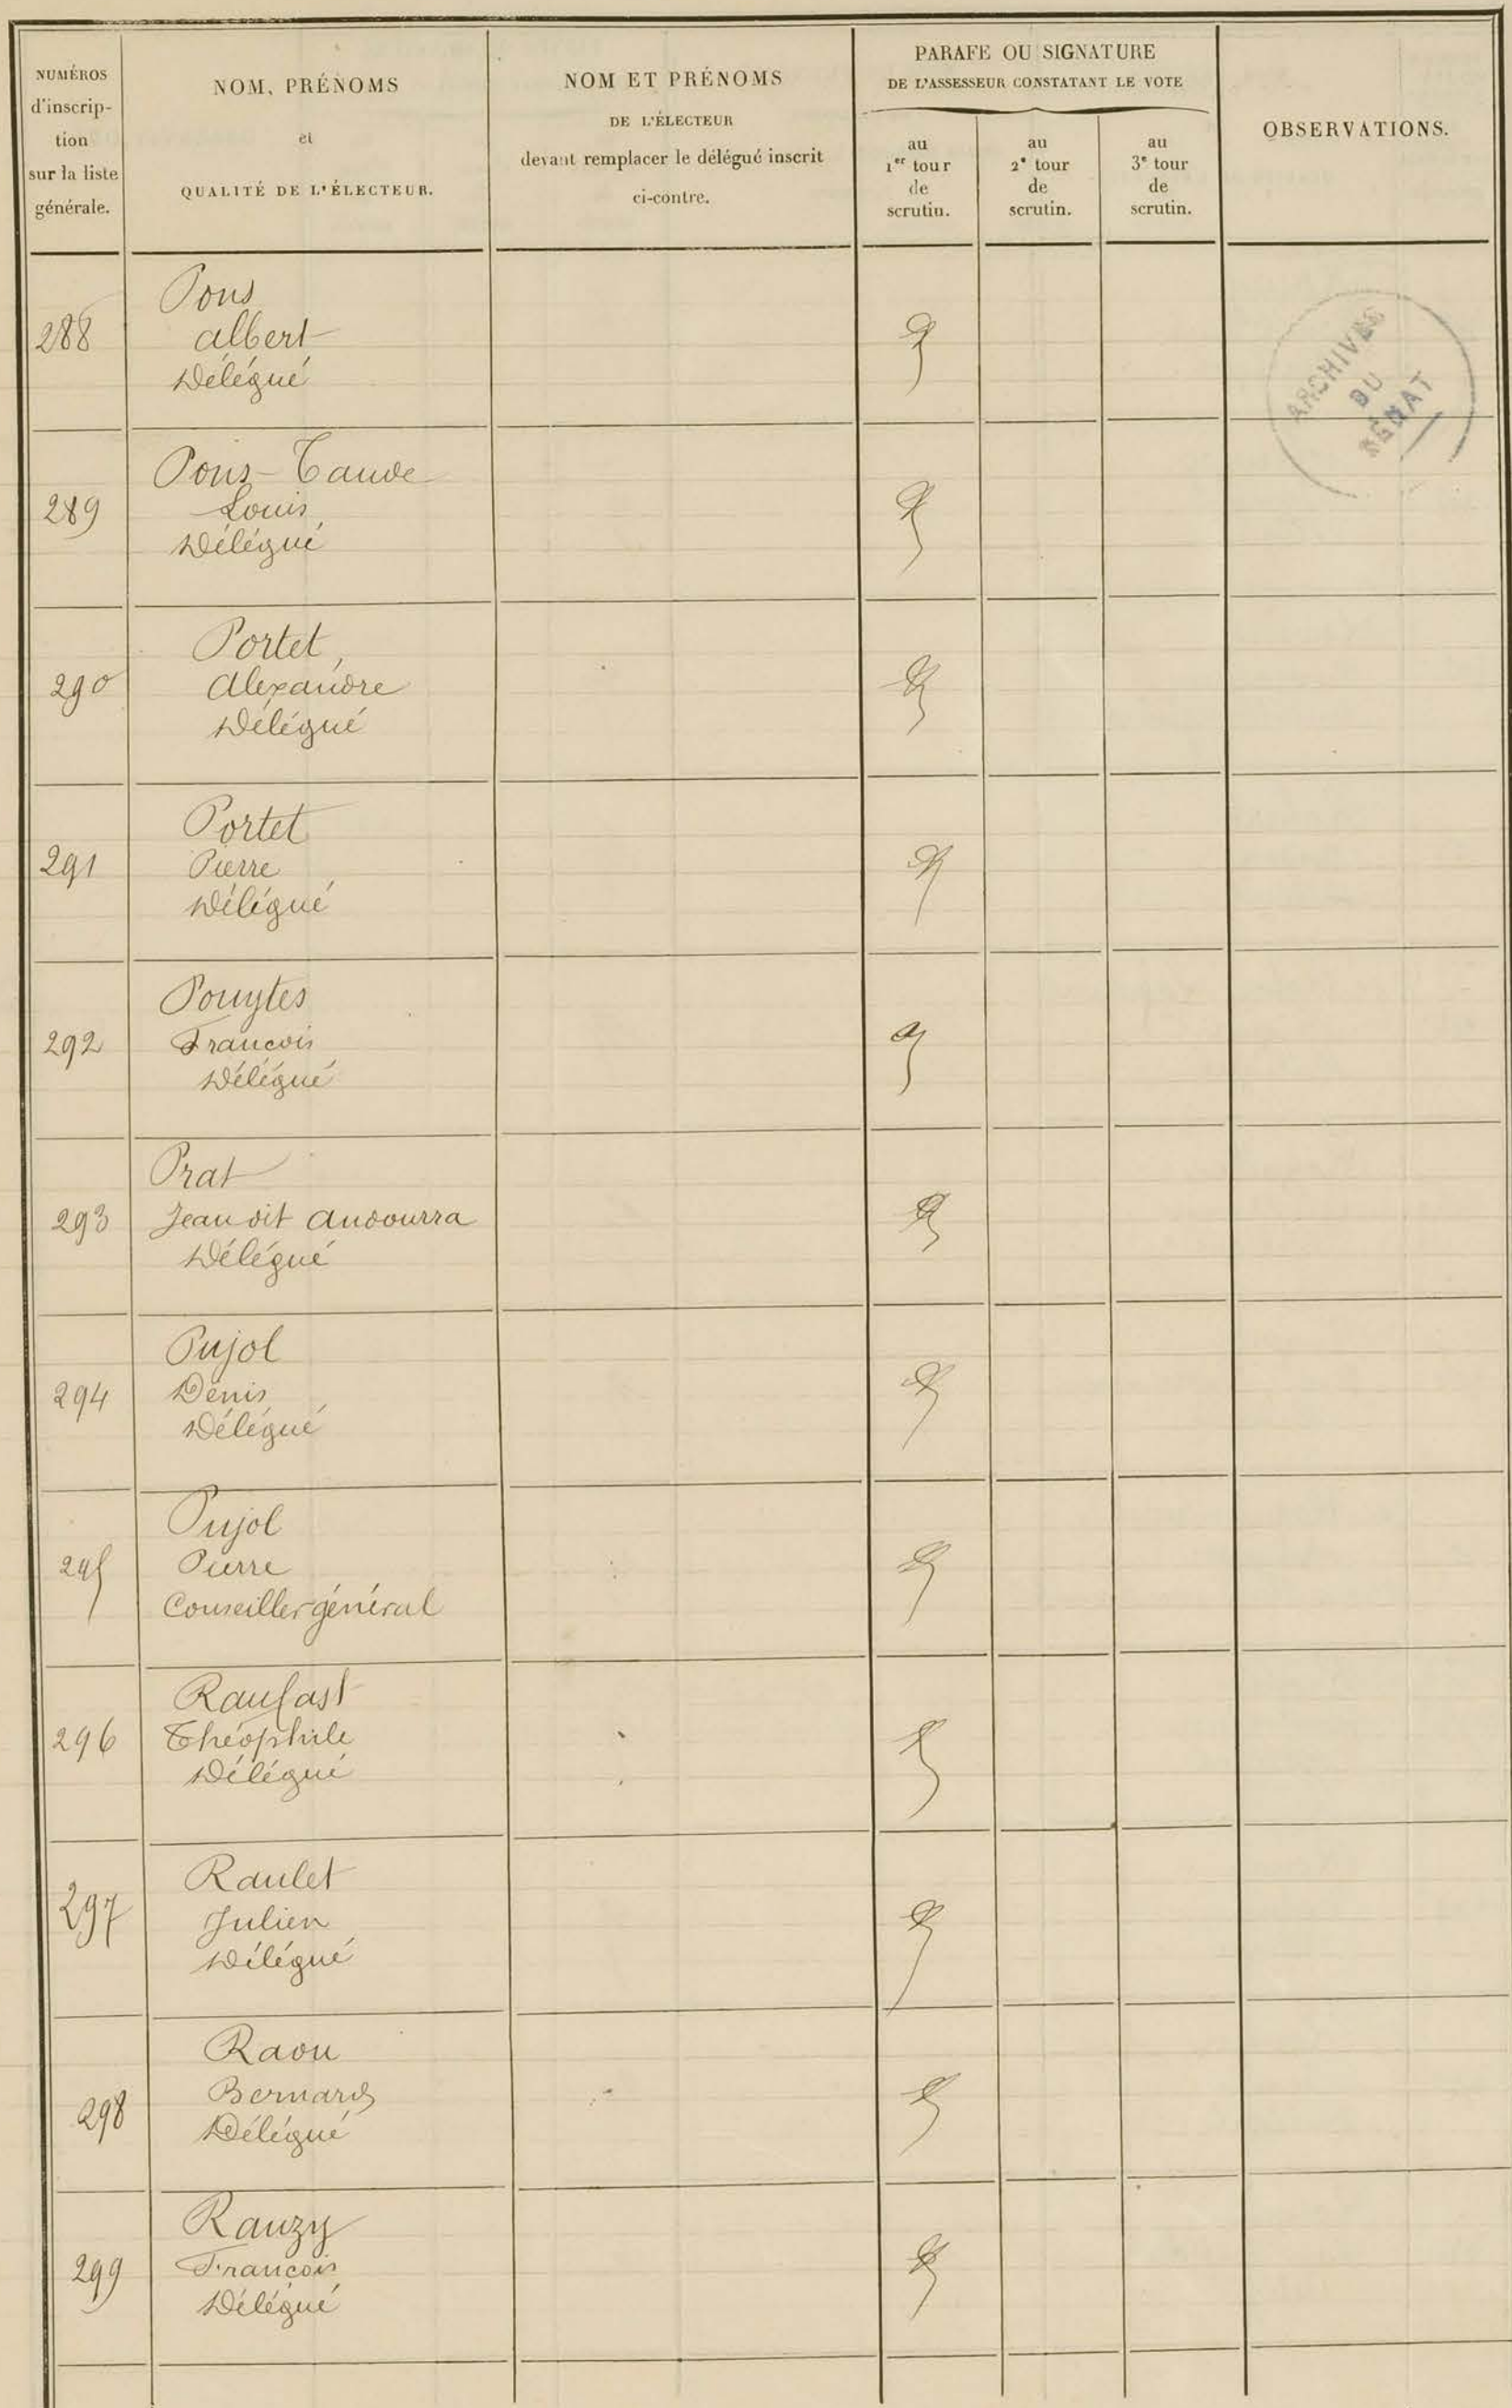 NUMÉROS
d'inscrip-
tion
sur la liste
générale.
NOM, PRÉNOMS
et
QUALITÉ DE L'ÉLECTEUR.
NOM ET PRÉNOMS
DE L'ÉLECTEUR
devant remplacer le délégué inscrit
ci-contre.
PARAFE OU SIGNATURE
DE L'ASSESSEUR CONSTATANT LE VOTE
au
1er tour
de
scrutin.
au
2e tour
de
scrutin.
au
3e tour
de
scrutin.
OBSERVATIONS.
288
Pons
Albert
Délégué
ARCHIVES
DU
SÉNAT
289
Pons-Tande
Louis
Délégué
290
Portet,
Alexandre
Délégué
291
Portet
Pierre
Délégué
292
Pouytes
Francois
Délégué
293
Prat
Jean dit Andourra
Délégué
294
Pujol
Denis
Délégué
295
Pujol
Pierre
Conseiller général
296
Raufast
Théophile
Délégué
297
Raulet
Julien
Délégué
298
Raou
Bernard
Délégué
299
Rauzy
François
Délégué